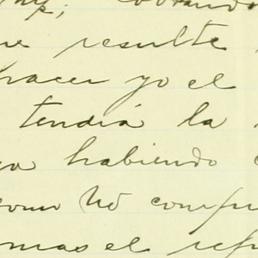 cobrando
resulte
hacer yo el
tendiá la
habiendo
como no
mas el